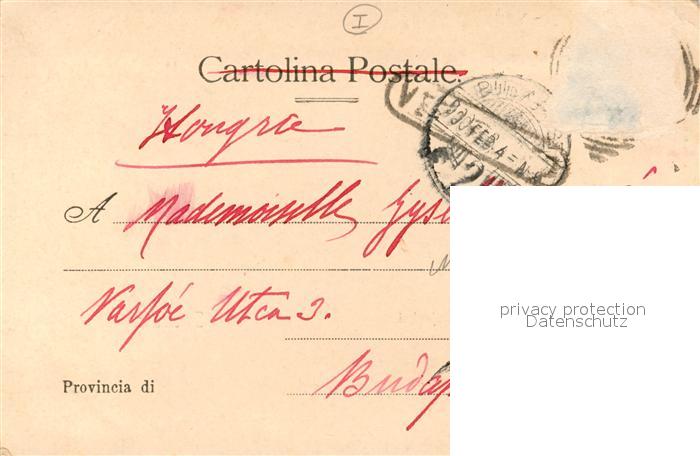 I
Cartolina Postale.
Hongrie
A Mademoiselle
Varfoé Utca 3.
Provincia di Budap
privacy protection
Datenschutz